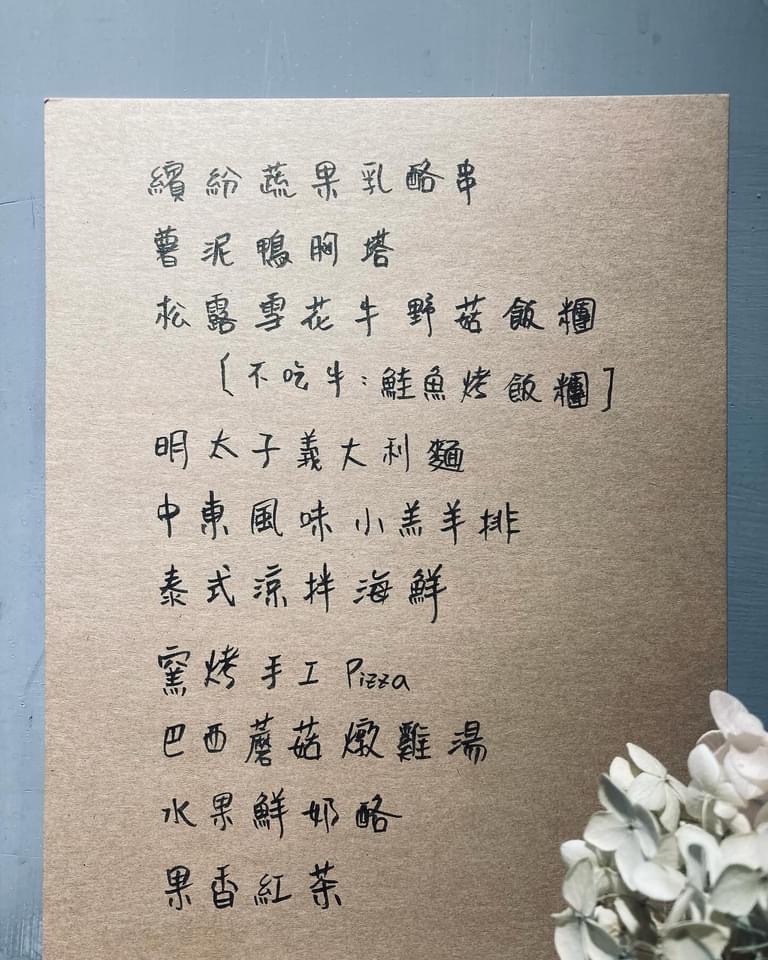 繽紛蔬果乳酪串
薯泥鴨胸塔
松露雪花牛野菇飯糰
[不吃牛:鮭魚烤飯糰]
明太子義大利麵
中東風味小羔羊排
泰式涼拌海鮮
窯烤手工Pizza
巴西蘑菇燉雞湯
水果鮮奶酪
果香紅茶